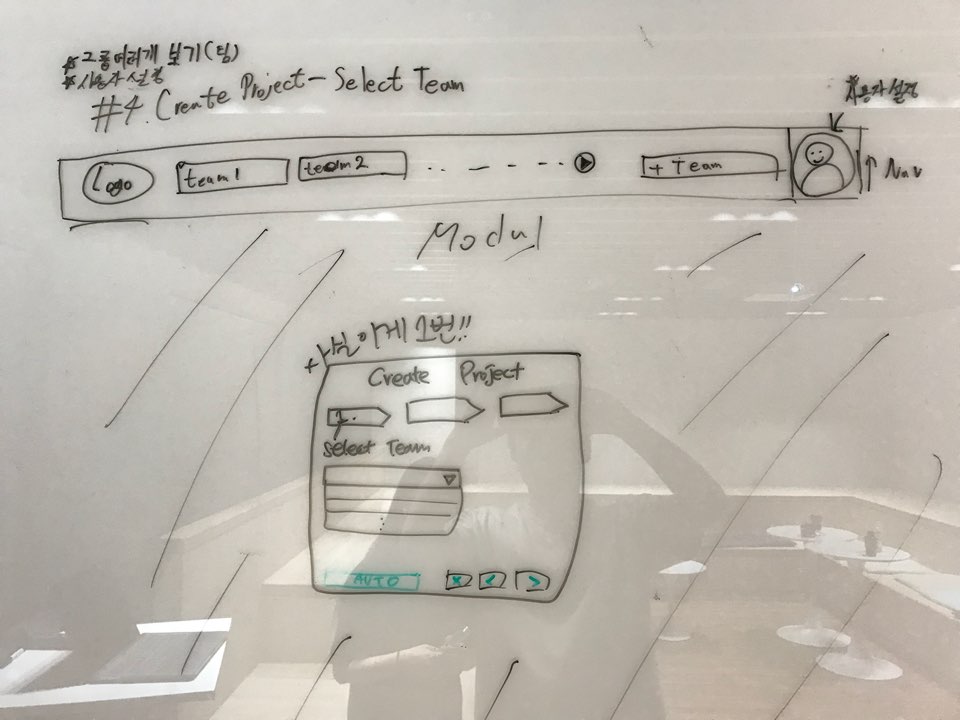 * 그룹여러개 보기(팀)
* 사용자 설정
#4. Create Project - Select Team
사용자 설정
Logo
team 1
team 2
+ Team
↑ Nav
Modul
+ 사실 이게 1번!!
Create Project
1.
Select Team
AUTO
x
<
>